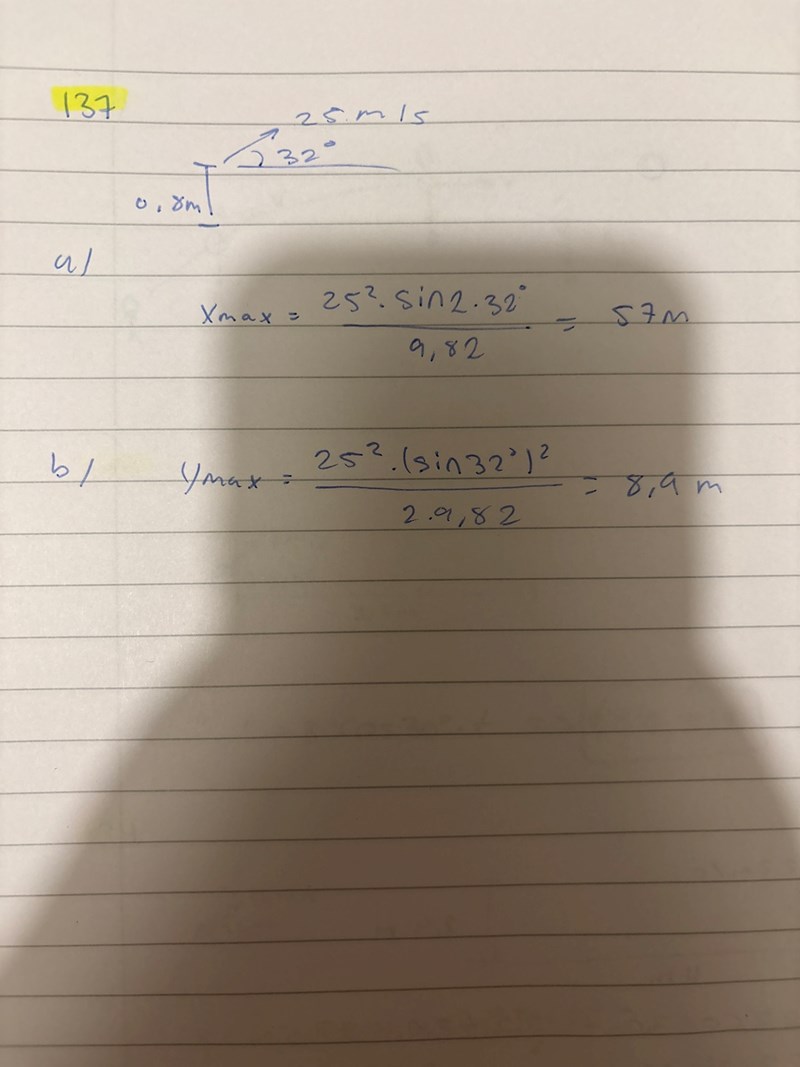 137
25 m/s
32°
0,8m
a/
Xmax = 25². sin2.32° / 9,82 = 57m
b/ ymax = 25².(sin32°)² / 2.9,82 = 8,9 m